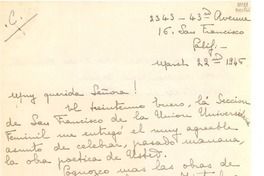 C.
2343 - 43rd Avenue
16. San Francisco
Calif.
March 22nd 1946
Muy querida Señora!
El treintaeuno enero, la Seccion
de San Francisco de la Union Univers
Feminil me entregó el muy agreable
asunto de celebrar, pasado mañana,
la obra poetica de Usted.
Conozco mas las obras de